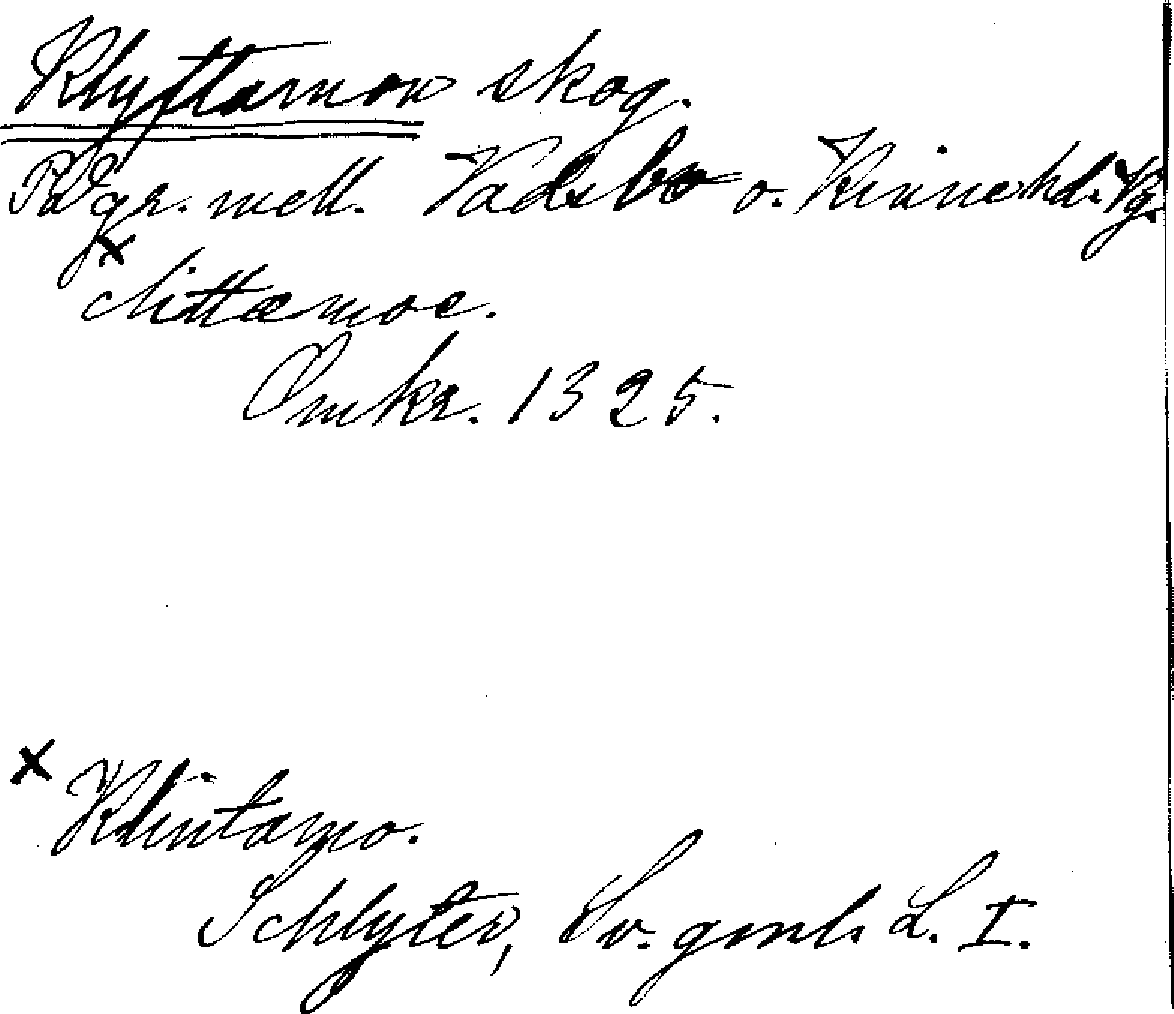 Klyftamon skog.
På gr. mell. Vadsbo o. Kinne hd. Vg.
× clittamoe.
Omkr. 1325.
× Klintamo.
Schlyter, Sv. gml. L. I.